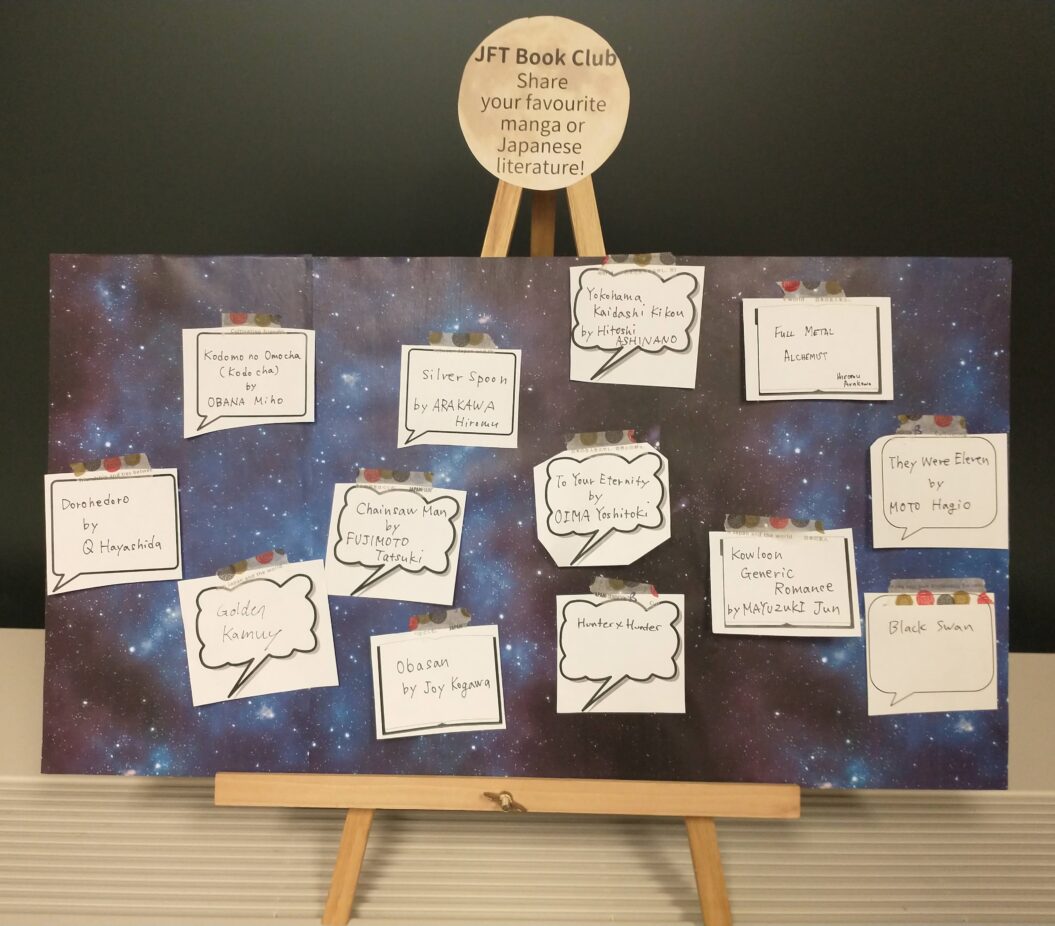 JFT Book Club
Share
your favourite
manga or
Japanese
literature!
Kodomo no Omocha
(Kodocha)
by
OBANA Miho
Silver Spoon
by ARAKAWA
Hiromu
Yokohama
Kaidashi Kikou
by Hitoshi
ASHINANO
FULL METAL
ALCHEMIST
HIROMU
ARAKAWA
Dorohedoro
by
Q Hayashida
Chainsaw Man
by
FUJIMOTO
Tatsuki
To Your Eternity
by
OIMA Yoshitoki
They Were Eleven
by
MOTO Hagio
Golden
Kamuy
Obasan
by Joy Kogawa
Hunter x Hunder
Kowloon
Generic
Romance
by MAYUZUKI Jun
Black Swan